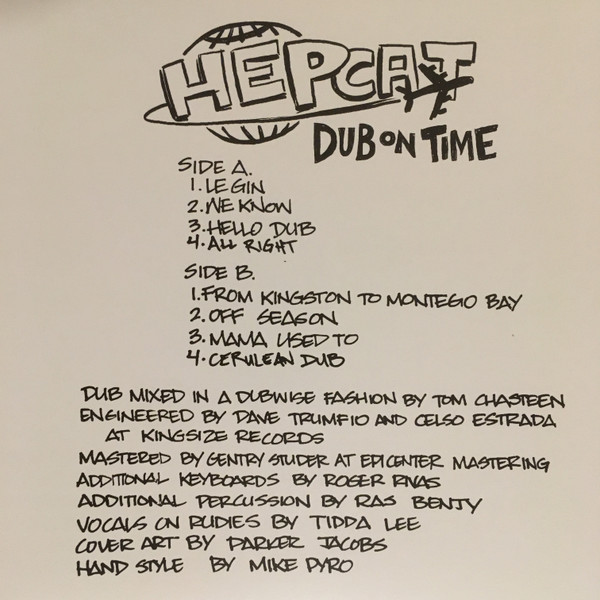 HEPCAT
DUB ON TIME
SIDE A.
1. LE GIN
2. WE KNOW
3. HELLO DUB
4. ALL RIGHT
SIDE B.
1. FROM KINGSTON TO MONTEGO BAY
2. OFF SEASON
3. MAMA USED TO
4. CERULEAN DUB
DUB MIXED IN A DUBWISE FASHION BY TOM CHASTEEN
ENGINEERED BY DAVE TRUMFIO AND CELSO ESTRADA
AT KINGSIZE RECORDS
MASTERED BY GENTRY STUDER AT EPICENTER MASTERING
ADDITIONAL KEYBOARDS BY ROGER RIVAS
ADDITIONAL PERCUSSION BY RAS BENJY
VOCALS ON RUDIES BY TIPPA LEE
COVER ART BY PARKER JACOBS
HAND STYLE BY MIKE PYRO